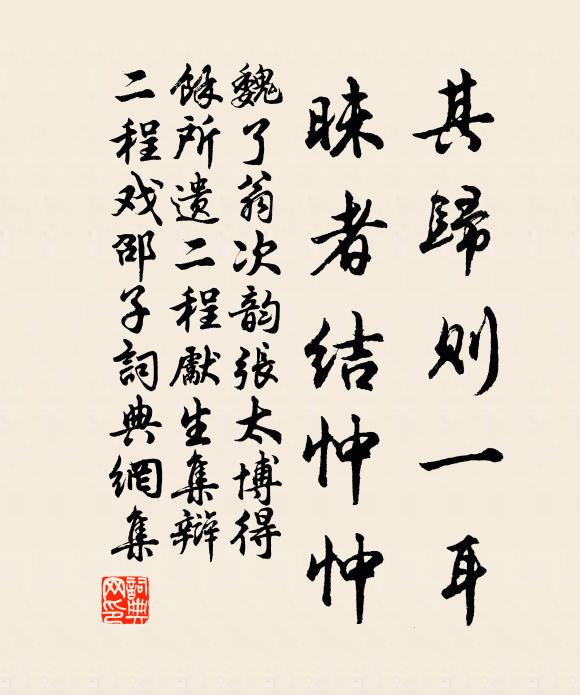 其歸则一耳
昧者结忡忡
魏了翁次韵張太博得
餘所遗二程獻生集辩
二程戏邵子詞典網集
詞典网印